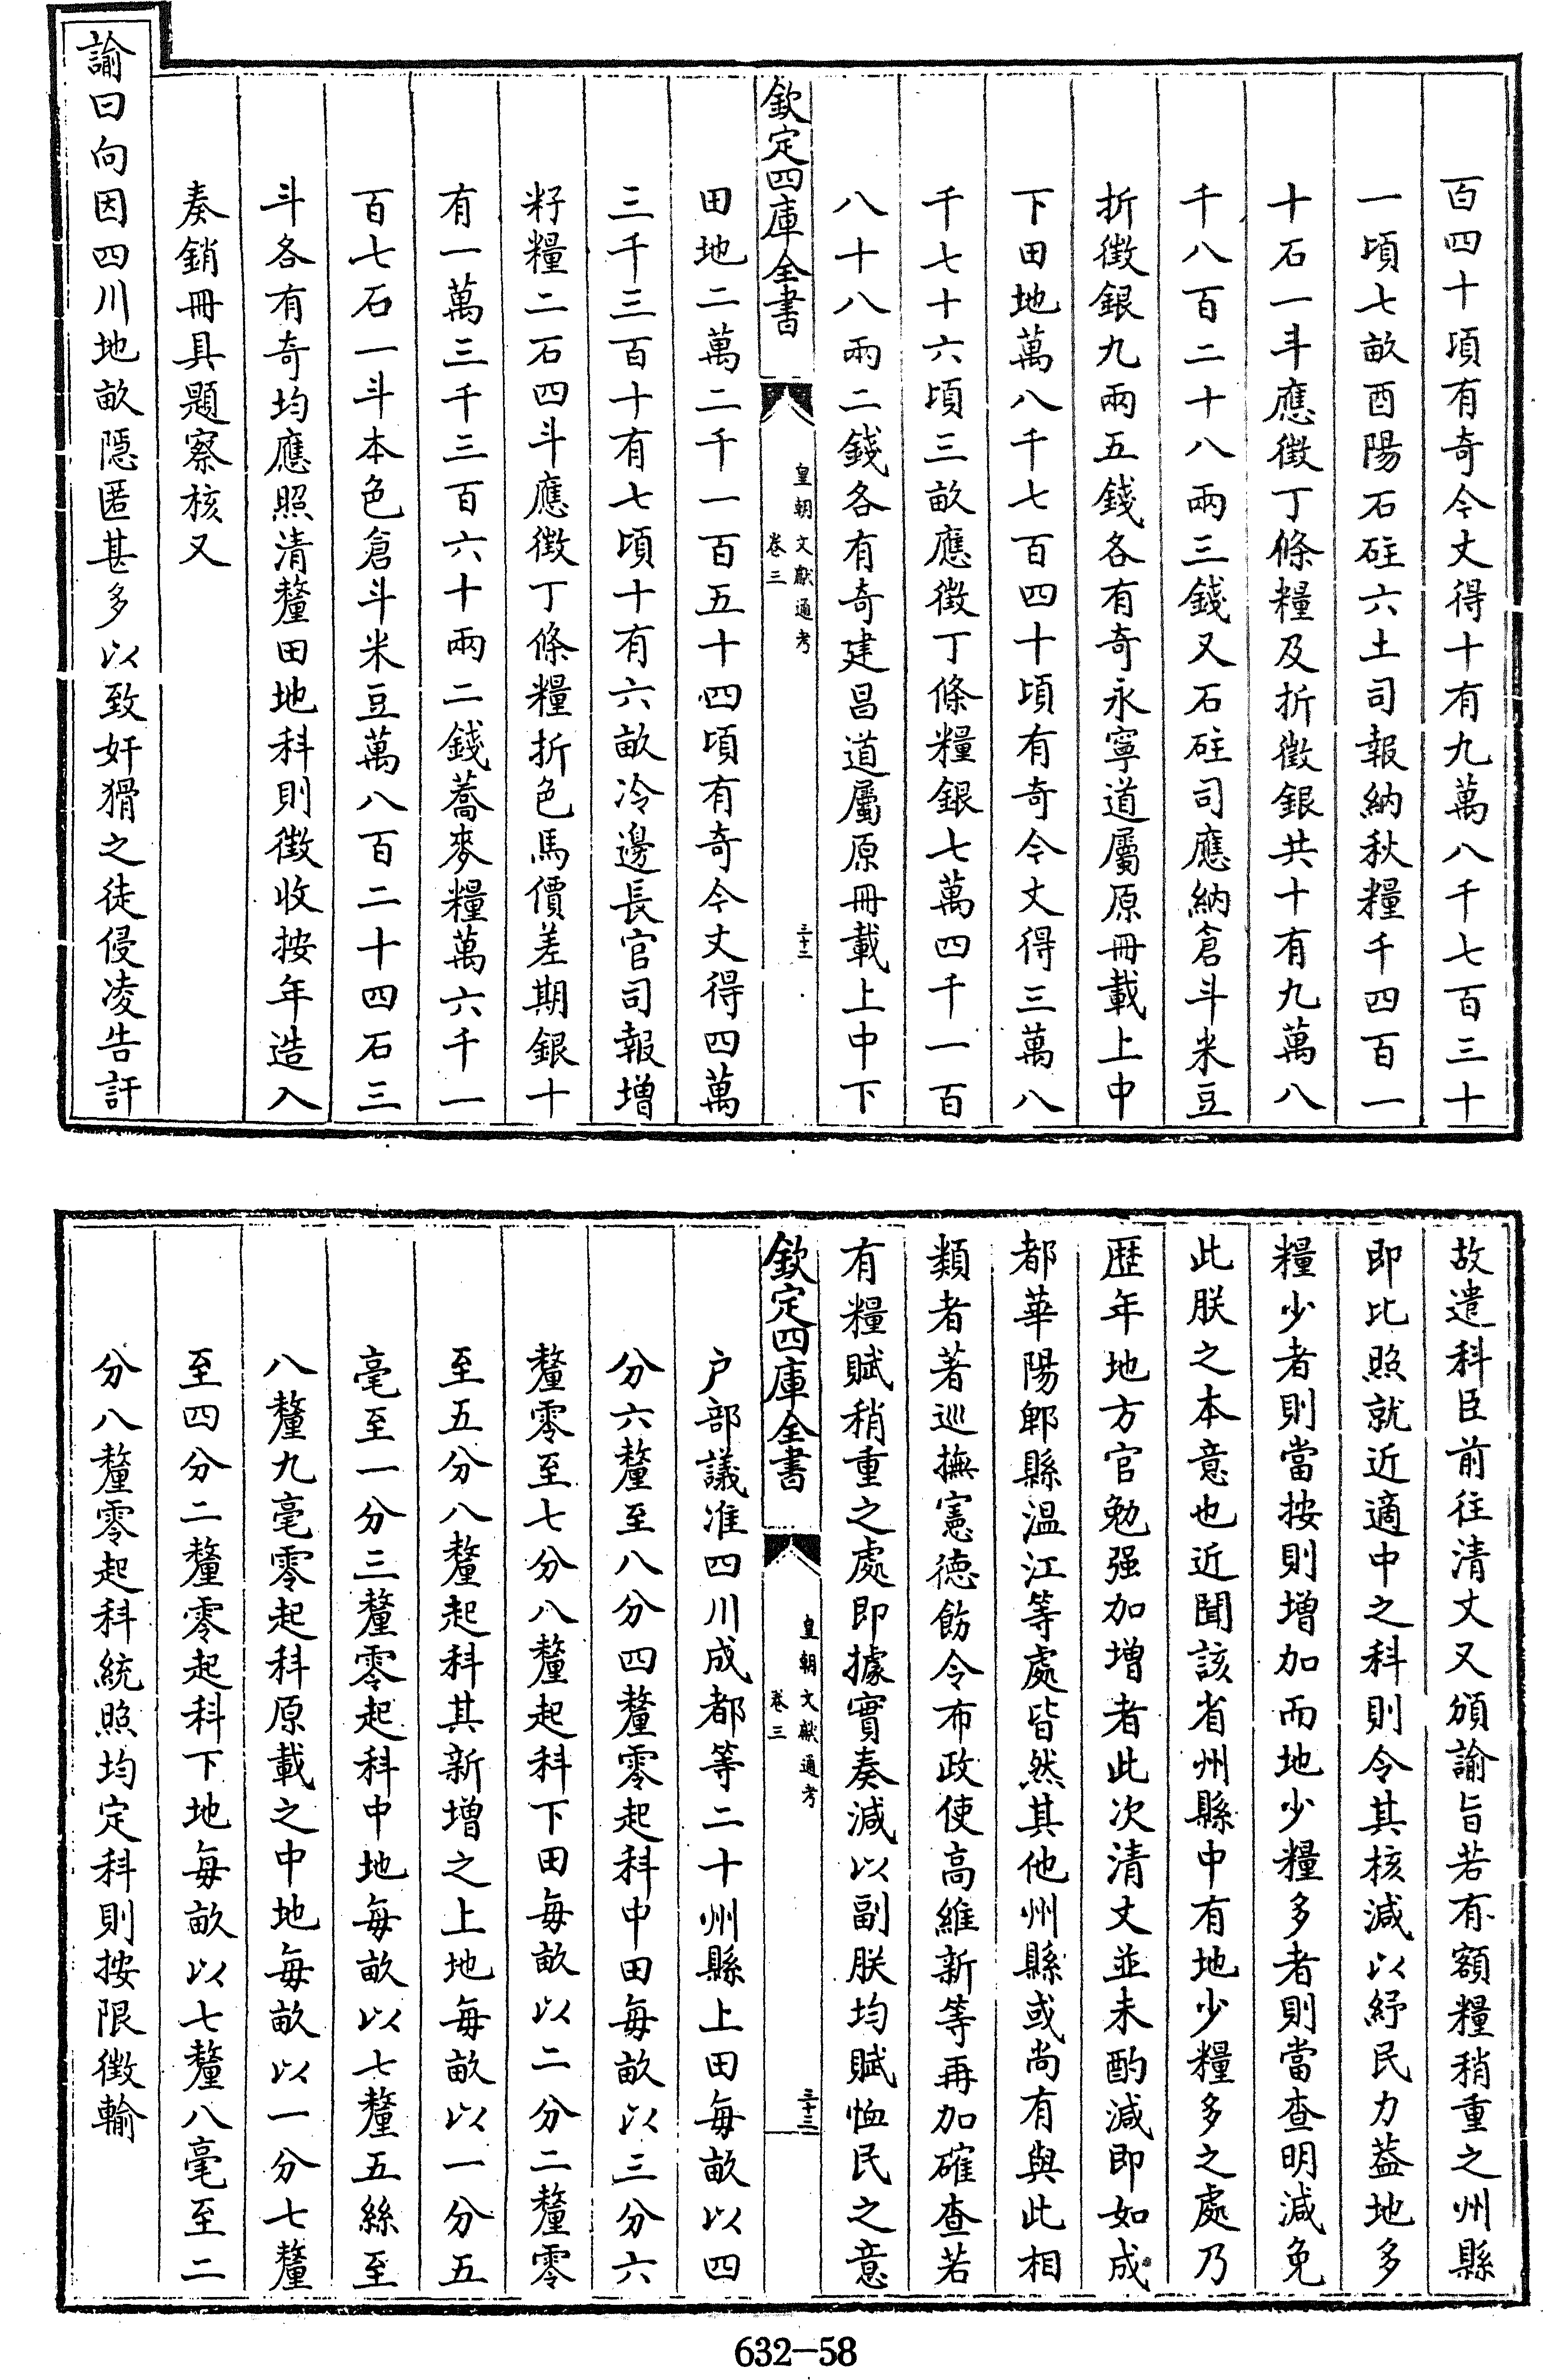 百四十頃有奇今丈得十有九萬八千七百三十
一頃七畝酉陽石砫六土司報納秋糧千四百一
十石一斗應徵丁條糧及折徵銀共十有九萬八
千八百二十八兩三錢又石砫司應納倉斗米豆
折徵銀九兩五錢各有奇永寧道屬原冊載上中
下田地萬八千七百四十頃有奇今丈得三萬八
千七十六頃三畝應徵丁條糧銀七萬四千一百
八十八兩二錢各有奇建昌道屬原冊載上中下
欽定四庫全書
皇朝文獻通考
卷三
三十三
田地二萬二千一百五十四頃有奇今丈得四萬
三千三百十有七頃十有六畝冷邊長官司報增
籽糧二石四斗應徵丁條糧折色馬價差期銀十
有一萬三千三百六十兩二錢蕎麥糧萬六千一
百七石一斗本色倉斗米豆萬八百二十四石三
斗各有奇均應照清釐田地科則徵收按年造入
奏銷冊具題察核又
諭曰向因四川地畝隱匿甚多以致奸猾之徒侵凌告訐
故遣科臣前往清丈又頒諭旨若有額糧稍重之州縣
即比照就近適中之科則令其核減以紓民力葢地多
糧少者則當按則增加而地少糧多者則當查明減免
此朕之本意也近聞該省州縣中有地少糧多之處乃
歷年地方官勉强加增者此次清丈並未酌減即如成
都華陽郫縣温江等處皆然其他州縣或尚有與此相
類者著巡撫憲德飭令布政使高維新等再加確查若
有糧賦稍重之處即據實奏減以副朕均賦恤民之意
欽定四庫全書
皇朝文獻通考
卷三
三十三
户部議准四川成都等二十州縣上田每畝以四
分六釐至八分四釐零起科中田每畝以三分六
釐零至七分八釐起科下田每畝以二分二釐零
至五分八釐起科其新增之上地每畝以一分五
毫至一分三釐零起科中地每畝以七釐五絲至
八釐九毫零起科原載之中地每畝以一分七釐
至四分二釐零起科下地每畝以七釐八毫至二
分八釐零起科統照均定科則按限徵輸
632—58